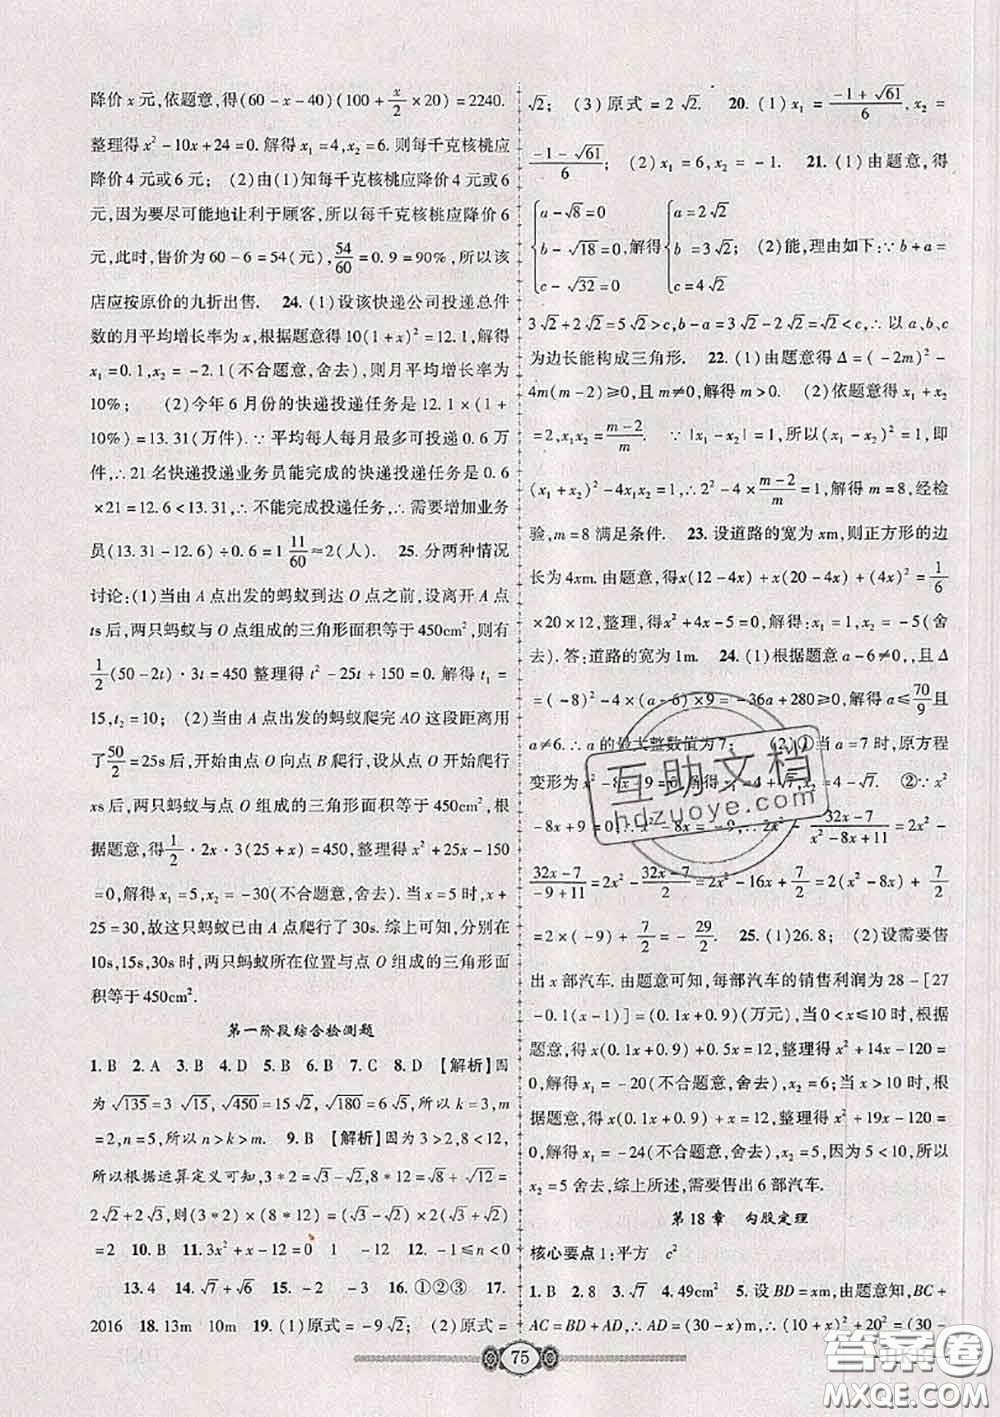 降价x元,依题意,得(60-x-40)(100+x/2×20)=2240.
整理得x²-10x+24=0.解得x₁=4,x₂=6.则每千克核桃应
降价4元或6元; (2)由(1)知每千克核桃应降价4元或6
元,因为要尽可能地让利于顾客,所以每千克核桃应降价6
元,此时,售价为60-6=54(元),54/60=0.9=90%,所以该
店应按原价的九折出售. 24.(1)设该快递公司投递总件
数的月平均增长率为x,根据题意得10(1+x)²=12.1,解得
x₁=0.1,x₂=-2.1(不合题意,舍去),则月平均增长率为
10%; (2)今年6月份的快递投递任务是12.1×(1+
10%)=13.31(万件).∵平均每人每月最多可投递0.6万
件,∴21名快递投递业务员能完成的快递投递任务是0.6
×21=12.6<13.31,∴不能完成投递任务,∴需要增加业务
员(13.31-12.6)÷0.6=1 11/60≈2(人). 25.分两种情况
讨论:(1)当由A点出发的蚂蚁到达O点之前,设离开A点
ts后,两只蚂蚁与O点组成的三角形面积等于450cm²,则有
1/2(50-2t)·3t=450整理得t²-25t+150=0.解得t₁=
15,t₂=10; (2)当由A点出发的蚂蚁爬完AO这段距离用
了50/2=25s后,开始由点O向点B爬行.设从点O爬行
xs后,两只蚂蚁与点O组成的三角形面积等于450cm²,根
据题意,得1/2·2x·3(25+x)=450,整理得x²+25x-150
=0,解得x₁=5,x₂=-30(不合题意,舍去).当x=5时,x+
25=30,故这只蚂蚁已由A点爬行了30s.综上可知,分别在
10s,15s,30s时,两只蚂蚁所在位置与点O组成的三角形面
积等于450cm².
第一阶段综合检测题
1.B 2.A 3.B 4.D 5.B 6.B 7.C 8.D 【解析】因
为√135=3√15,√450=15√2,√180=6√5,所以k=3,m=
2,n=5,所以n>k>m. 9.B 【解析】因为3>2,8<12,
所以根据运算定义可知,3*2=√3-√2,8*12=√8+√12=
2√2+2√3,则(3*2)×(8*12)=(√3-√2)×(2√2+2√3)
=2 10.B 11.3x²+x-12=0 1 -12 12.-1≤n<0
13.4 14.√7+√6 15.-2 -3 16.①②③ 17.
2016 18.13m 10m 19.(1)原式=-9√2; (2)原式=
√2; (3)原式=2√2. 20.(1)x₁=(-1+√61)/6,x₂=
(-1-√61)/6; (2)x₁=6,x₂=-1. 21.(1)由题意,得
{a-√8=0 {a=2√2
b-√18=0,解得 b=3√2; (2)能,理由如下:∵b+a=
c-√32=0 c=4√2
3√2+2√2=5√2>c,b-a=3√2-2√2=√2<c,∴以a、b、c
为边长能构成三角形. 22.(1)由题意得Δ=(-2m)²-
4m(m-2)≥0,且m≠0,解得m>0. (2)依题意得x₁+x₂
=2,x₁x₂=(m-2)/m. ∵|x₁-x₂|=1,所以(x₁-x₂)²=1,即
(x₁+x₂)²-4x₁x₂=1,∴2²-4×(m-2)/m=1,解得m=8,经检
验,m=8满足条件. 23.设道路的宽为xm,则正方形的边
长为4xm.由题意,得x(12-4x)+x(20-4x)+(4x)²=1/6
×20×12,即x²+4x-5=0,解得:x₁=1,x₂=-5(舍
去).答:道路的宽为1m. 24.(1)根据题意a-6≠0,且Δ
=(-8)²-4×(a-6)×9=-36a+280≥0,解得a≤70/9且
a≠6.∴a的最大整数值为7; (2)①当a=7时,原方程
变形为x²-8x+9=0,解得x₁=4+√7,x₂=4-√7 ②∵x²
-8x+9=0,∴x²-8x=-9,∴2x²-(32x-7)/(x²-8x+11)=2x²-
(32x-7)/(-9+11)=2x²-(32x-7)/2=2x²-16x+7/2=2(x²-8x)+7/2
=2×(-9)+7/2=-29/2. 25.(1)26.8; (2)设需要售
出x部汽车.由题意可知,每部汽车的销售利润为28-[27
-0.1(x-1)]=(0.1x+0.9)(万元),当0<x≤10时,根据
题意,得x(0.1x+0.9)+0.5x=12,整理得x²+14x-120=
0,解得x₁=-20(不合题意,舍去),x₂=6;当x>10时,根
据题意,得x(0.1x+0.9)+x=12,整理得x²+19x-120=
0,解得x₁=-24(不合题意,舍去).因为5<10,所以
x₂=5舍去,综上所述,需要售出6部汽车.
第18章 勾股定理
核心要点1:平方 c²
1.B 2.8 3.√7 4.49cm² 5.设BD=xm,由题意知,BC+
AC=BD+AD,∴AD=(30-x)m,∴(10+x)²+20²=(30-
75
互助文档
hdzuoye.com
答案圈
MXQE.COM